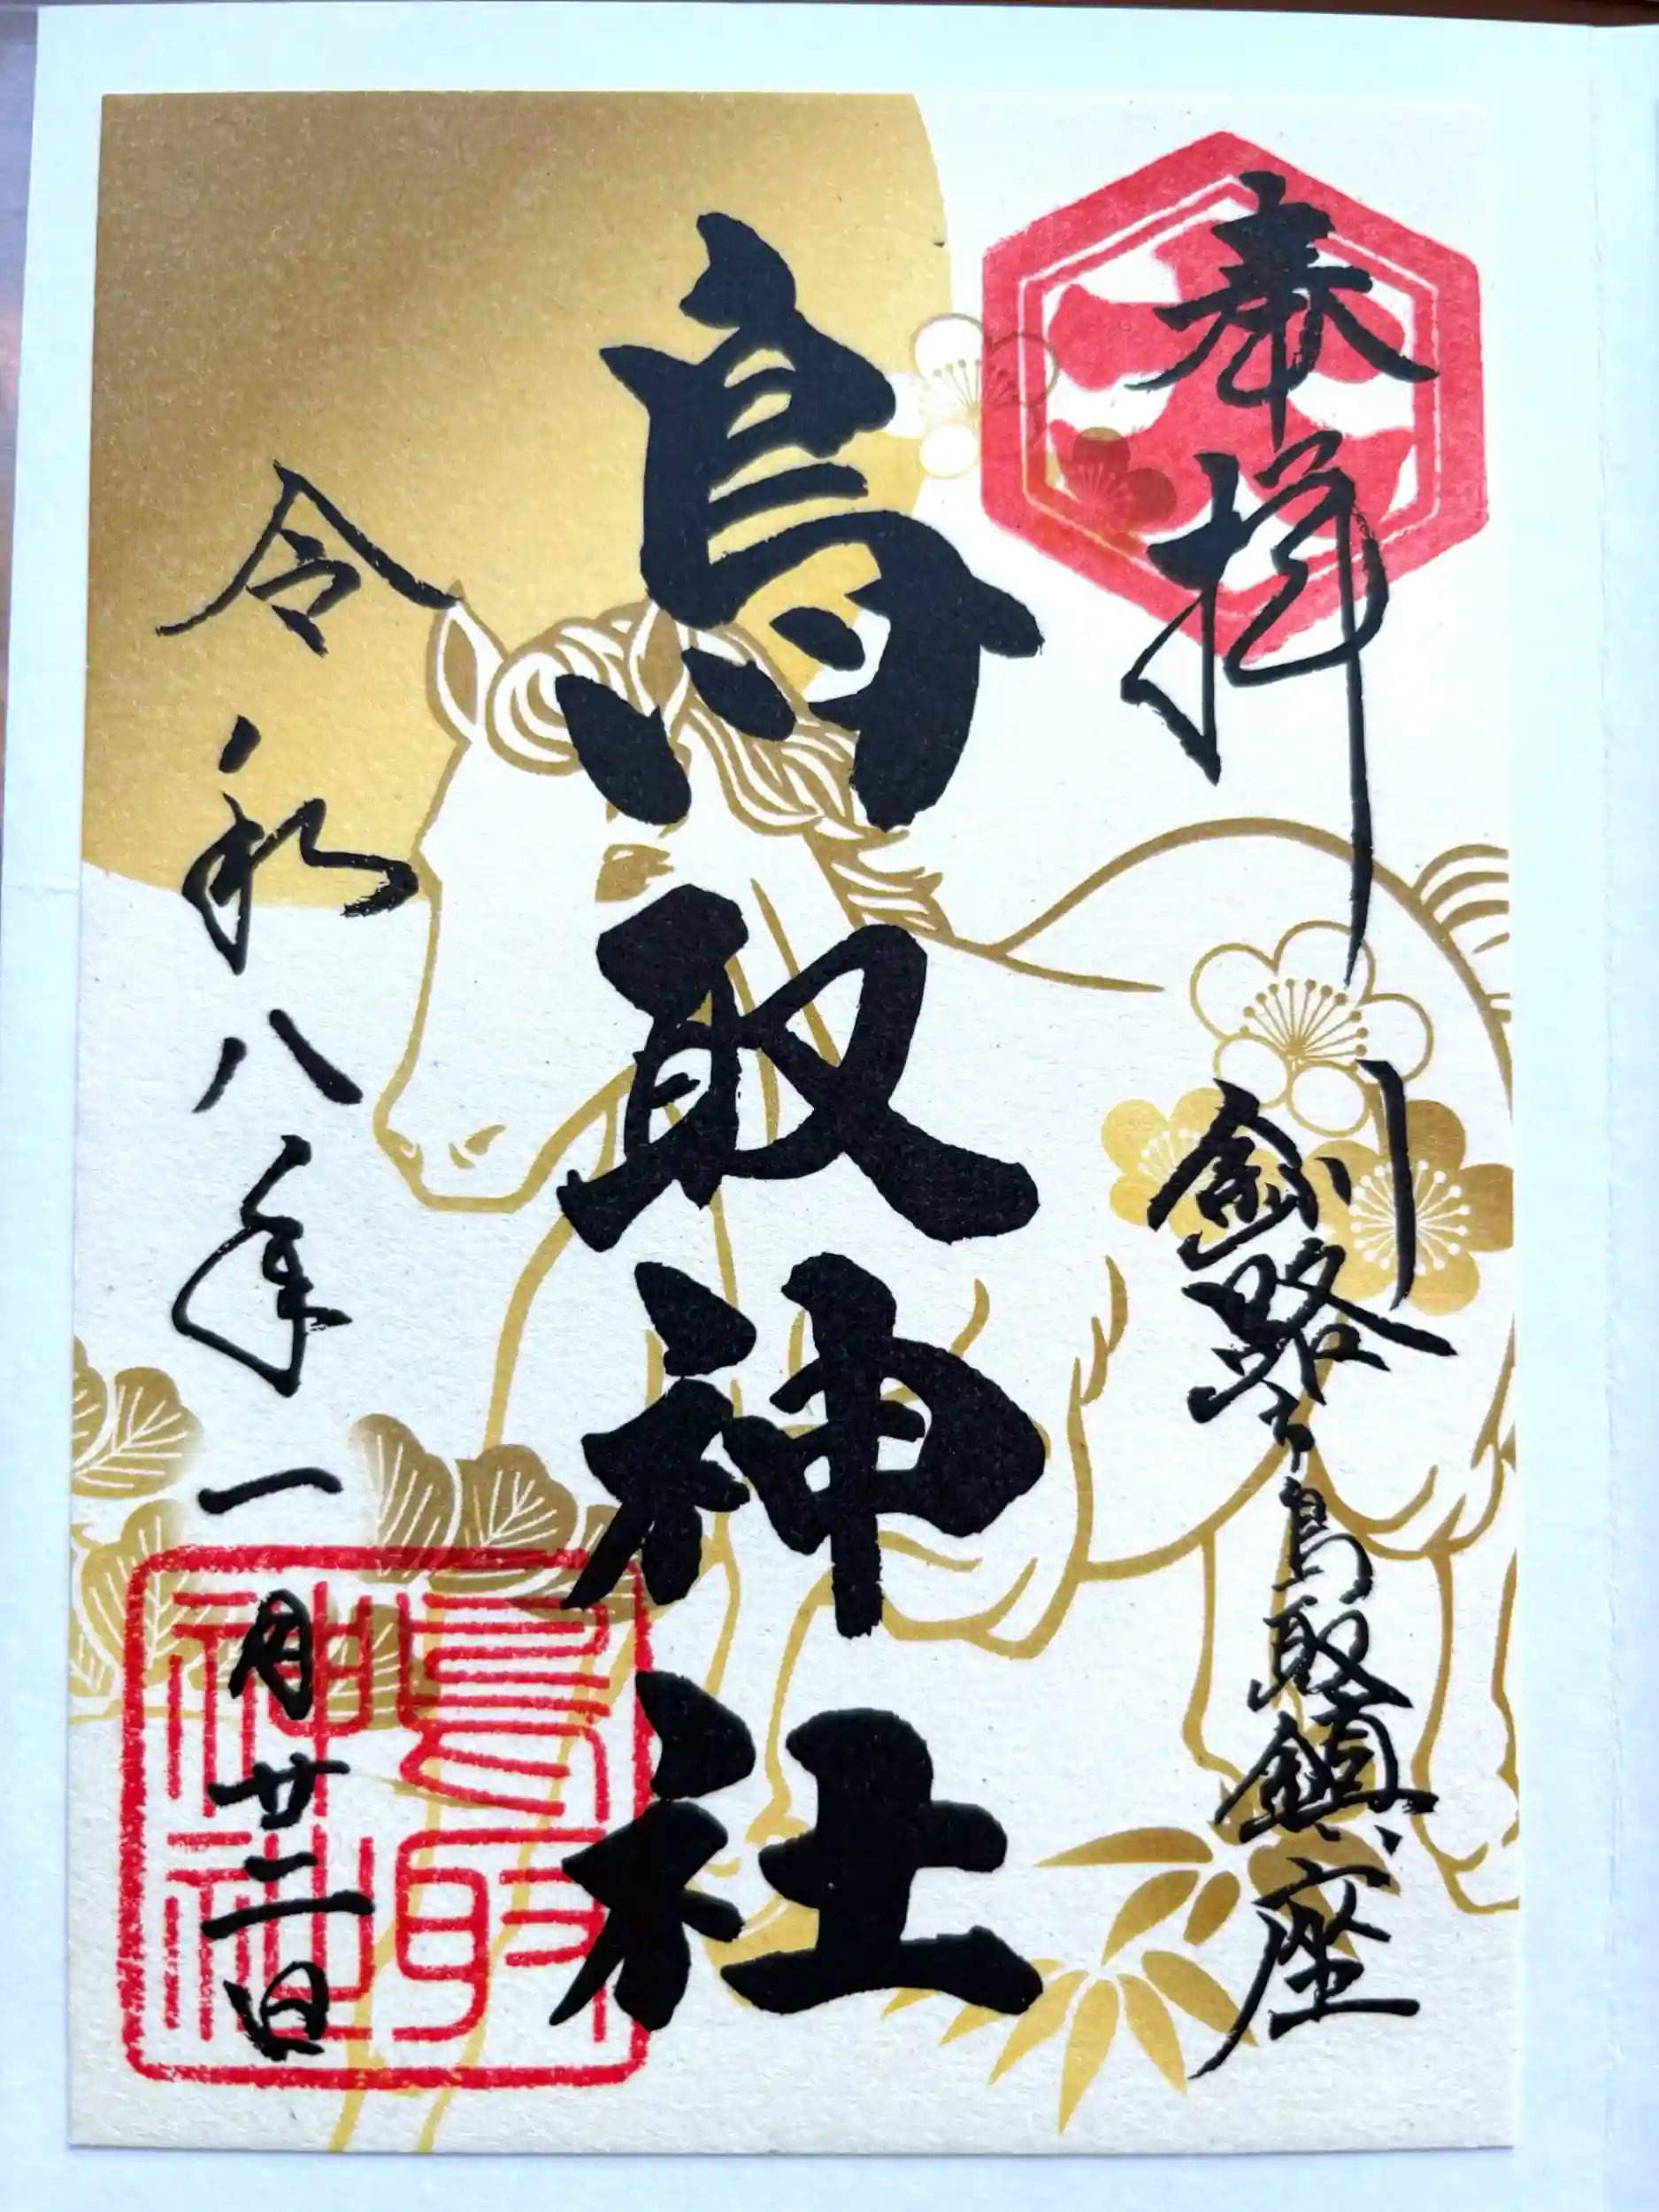 奉拝
釧路市鳥取鎮座
鳥取神社
令和八年一月廿二日
鳥取
神社